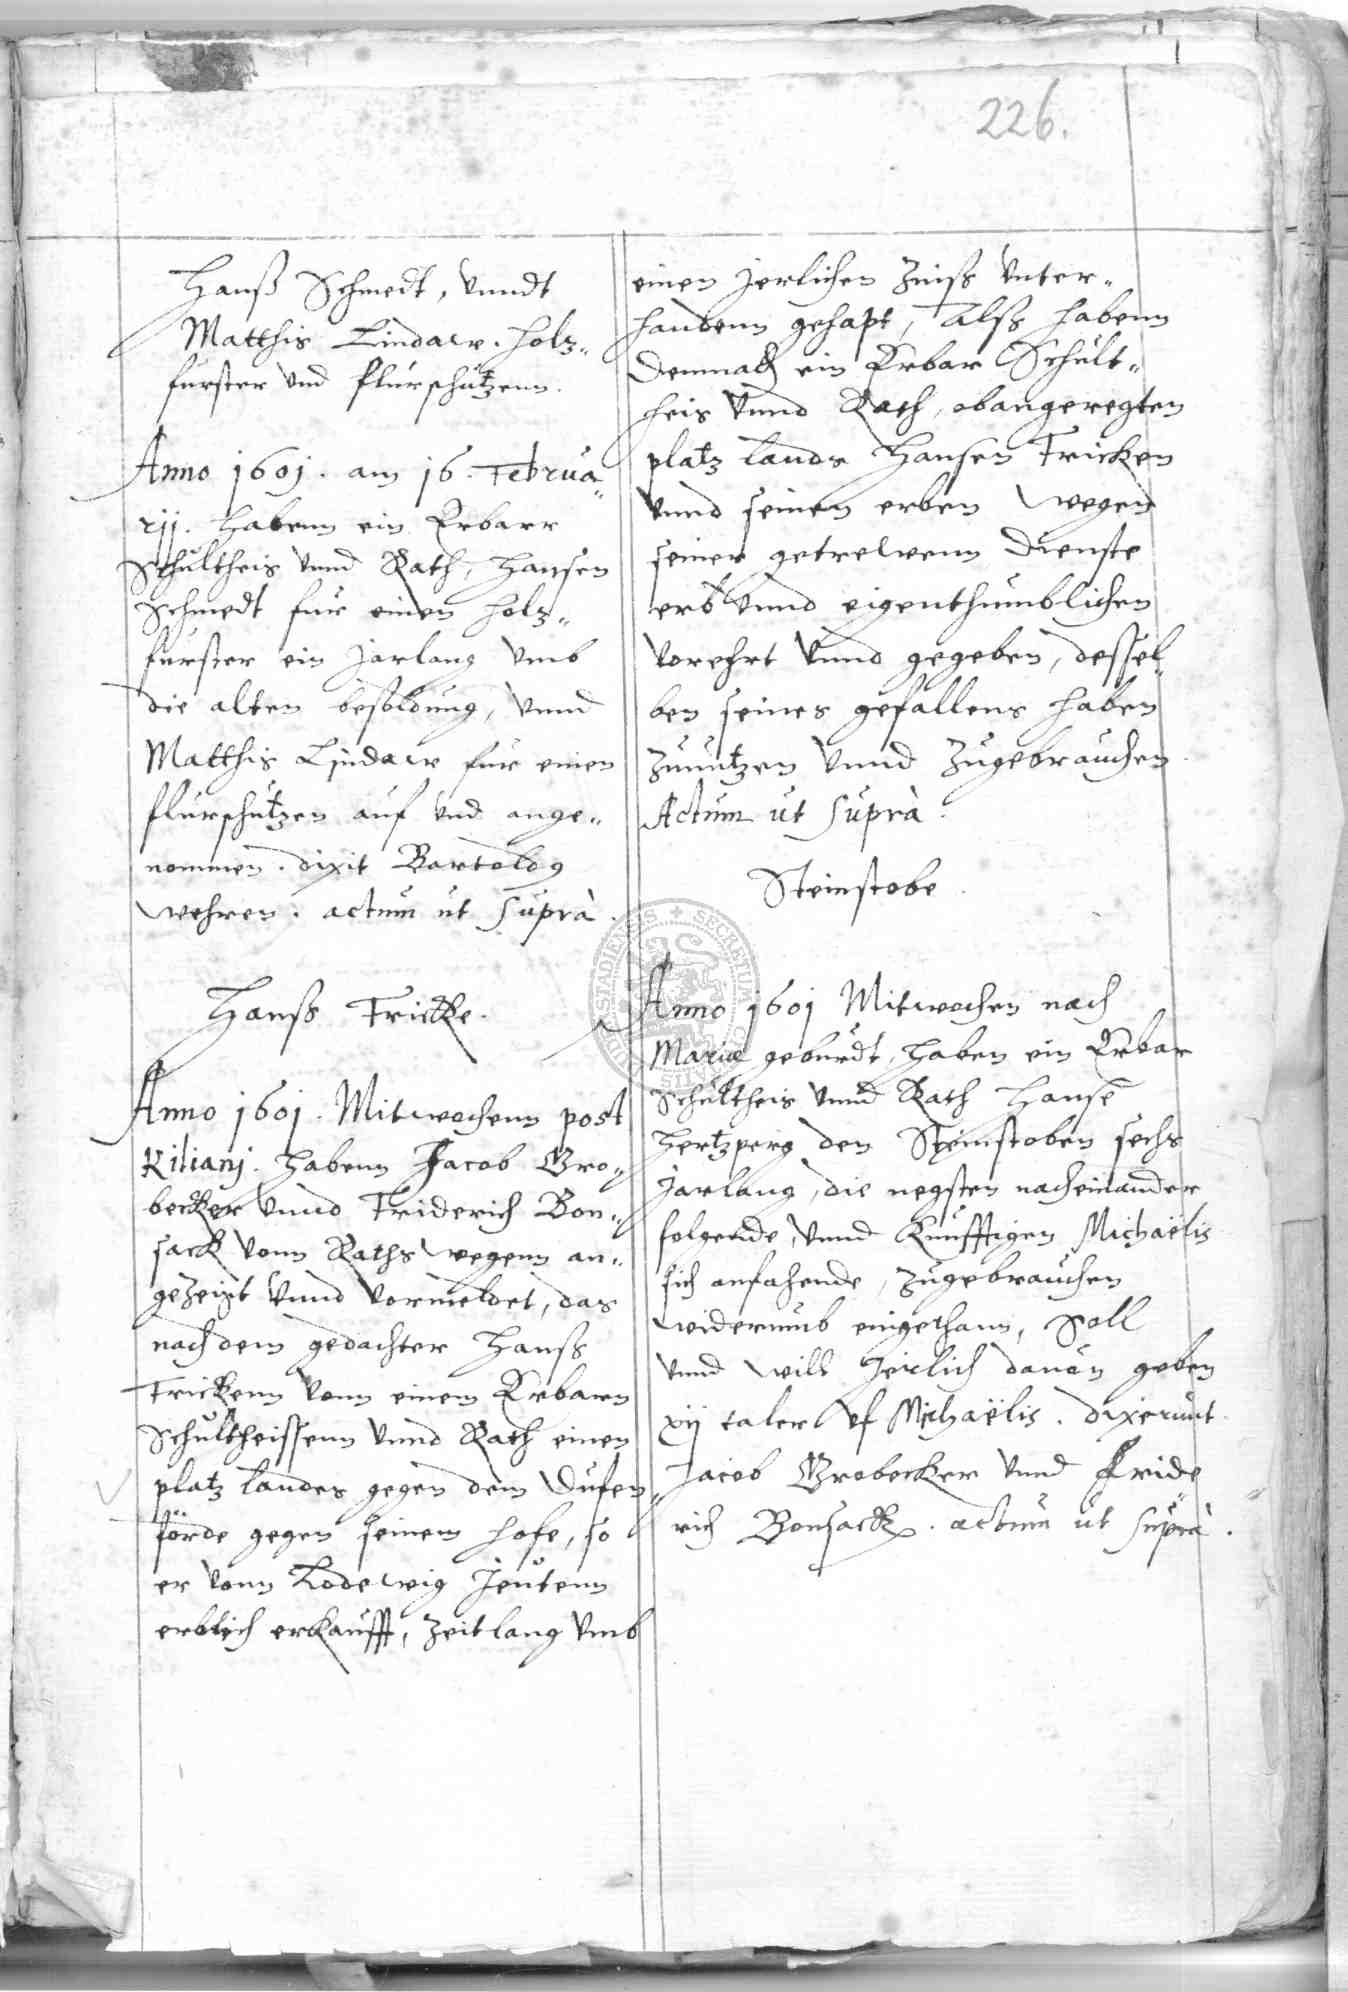 226.
Hanß Schmedt, vnndt
Matthis Lindaw. holz„
furster vnd flurschützenn.
Anno 1601. am 16. Februa„
rij. Habenn ein Erbarr
Schultheis vnnd Rath, Hansen
Schmedt für einen holz„
furster ein Jarlang vmb
die alten besoldung, vnnd
Matthis Lindaw für einen
flurschützen auf vnd ange„
nommen. dixit Bartoldg
Wehren. actum ut suprà.
Hanß Fricke.
Anno 1601. Mitwochenn post
Kilianj. Habenn Jacob Gro„
becker vnnd Friderich Bon„
sack vonn Raths wegenn an„
gezeigt vnnd vormeldet, das
nachdem gedachter Hanß
Frickenn vonn einem Erbarn
Schultheissenn vnnd Rath einen
platz Landes gegen dem Dufen„
förde gegen seinem Hofe, so
er vonn Lodewig Jeutenn
erblich erkaufft, Zeitlang vmb
einen Jerlichen Zinß vnter„
handenn gehapt, Alß habenn
demnach ein Erbar Schult„
heis vnnd Rath, obangeregten
platz Lands Hansen Fricken
vnnd seinen erben wegen
seiner getrewenn Dienste
erb vnnd eigenthumblichen
vorehrt vnnd gegeben, dessel„
ben seines gefallens haben
zunützen vnnd zugebrauchen.
Actum ut suprà.
Steinstobe.
Anno 1601 Mitwochen nach
Mariæ geburdt, haben ein Erbar
Schultheis vnnd Rath Hanse
Hertzperg den Steinstoben sechs
Jarlang, die negsten nacheinander
folgende, vnnd Kunfftigen Michaëlis
sich anfahende, zugebrauchen
widerumb eingethann, Soll
vnnd will Jerlich dauon geben
xij taler vf Michaëlis. dixerunt
Jacob Grobecker vnnd Fride„
rich Bonsack. actum ut suprà.